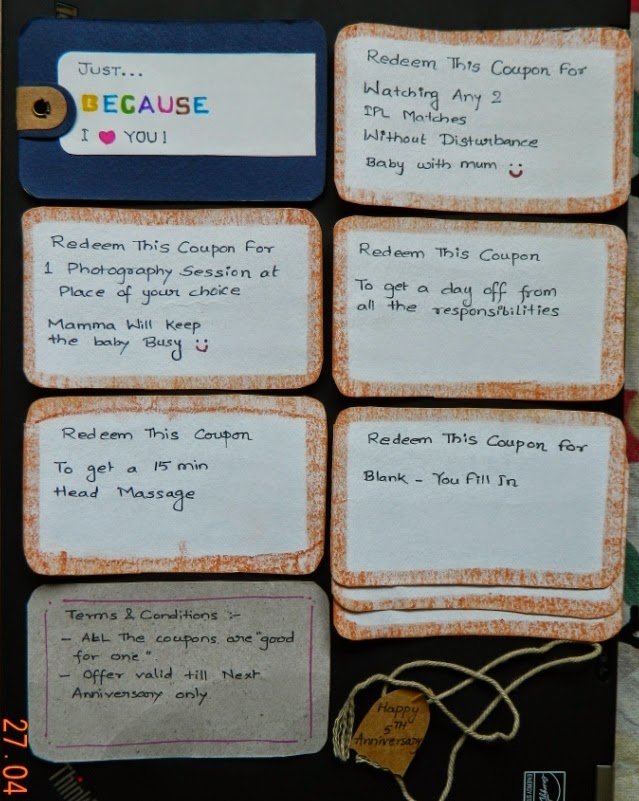 JUST...
BECAUSE
I ❤ YOU!
Redeem This Coupon For
Watching Any 2
IPL Matches
Without Disturbance
Baby with mum
Redeem This Coupon For
1 Photography Session at
Place of your choice
Mamma Will Keep
the baby Busy
Redeem This Coupon
To get a day off from
all the responsibilities
Redeem This Coupon
To get a 15 min
Head Massage
Redeem This Coupon for
Blank - You Fill In
Terms & Conditions :-
- All The coupons are "good
for one"
- Offer valid till Next
Anniversary only
Happy
5TH
Anniversary
27.04
Think